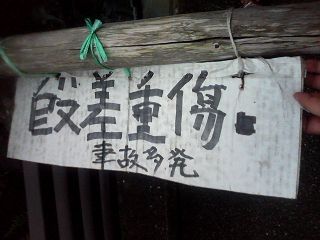 段差重傷.
事故多発